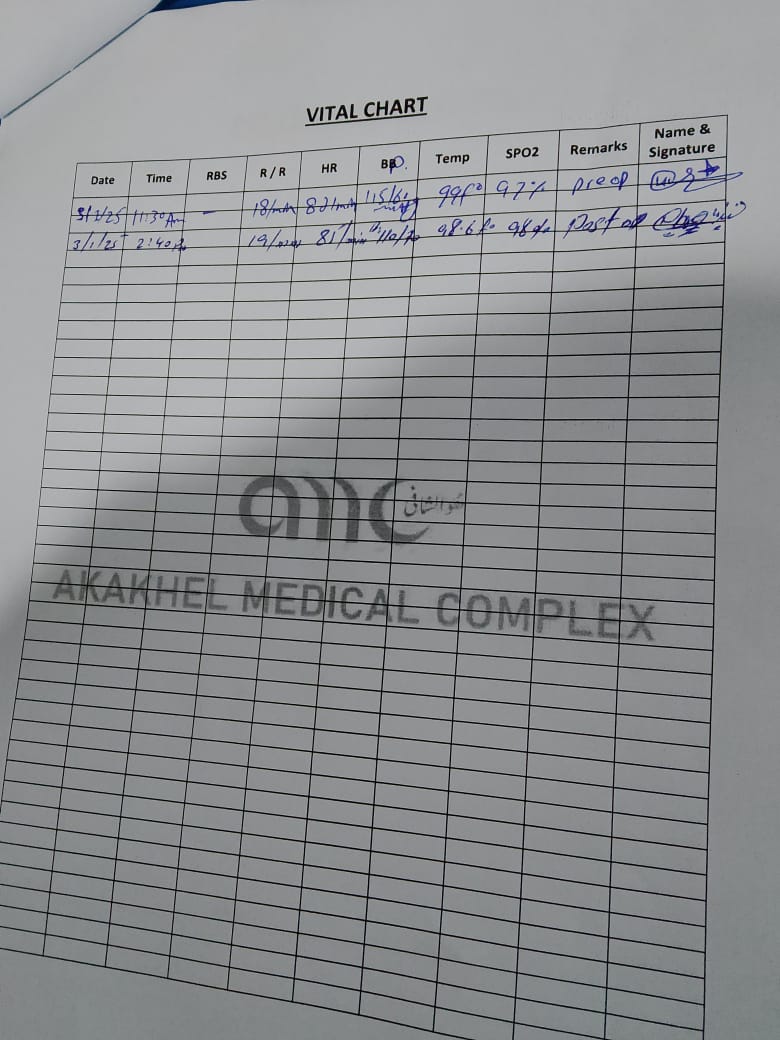 VITAL CHART
Date Time RBS R / R HR BP. Temp SPO2 Remarks Name & Signature
3/1/25 11:30 Am – 18/min 82/min 115/6 99f° 97% preop
3/1/25 2:40 19/min 81/min 110/70 98.6 f° 98% Post op
amc هوالشافی
AKAKHEL MEDICAL COMPLEX